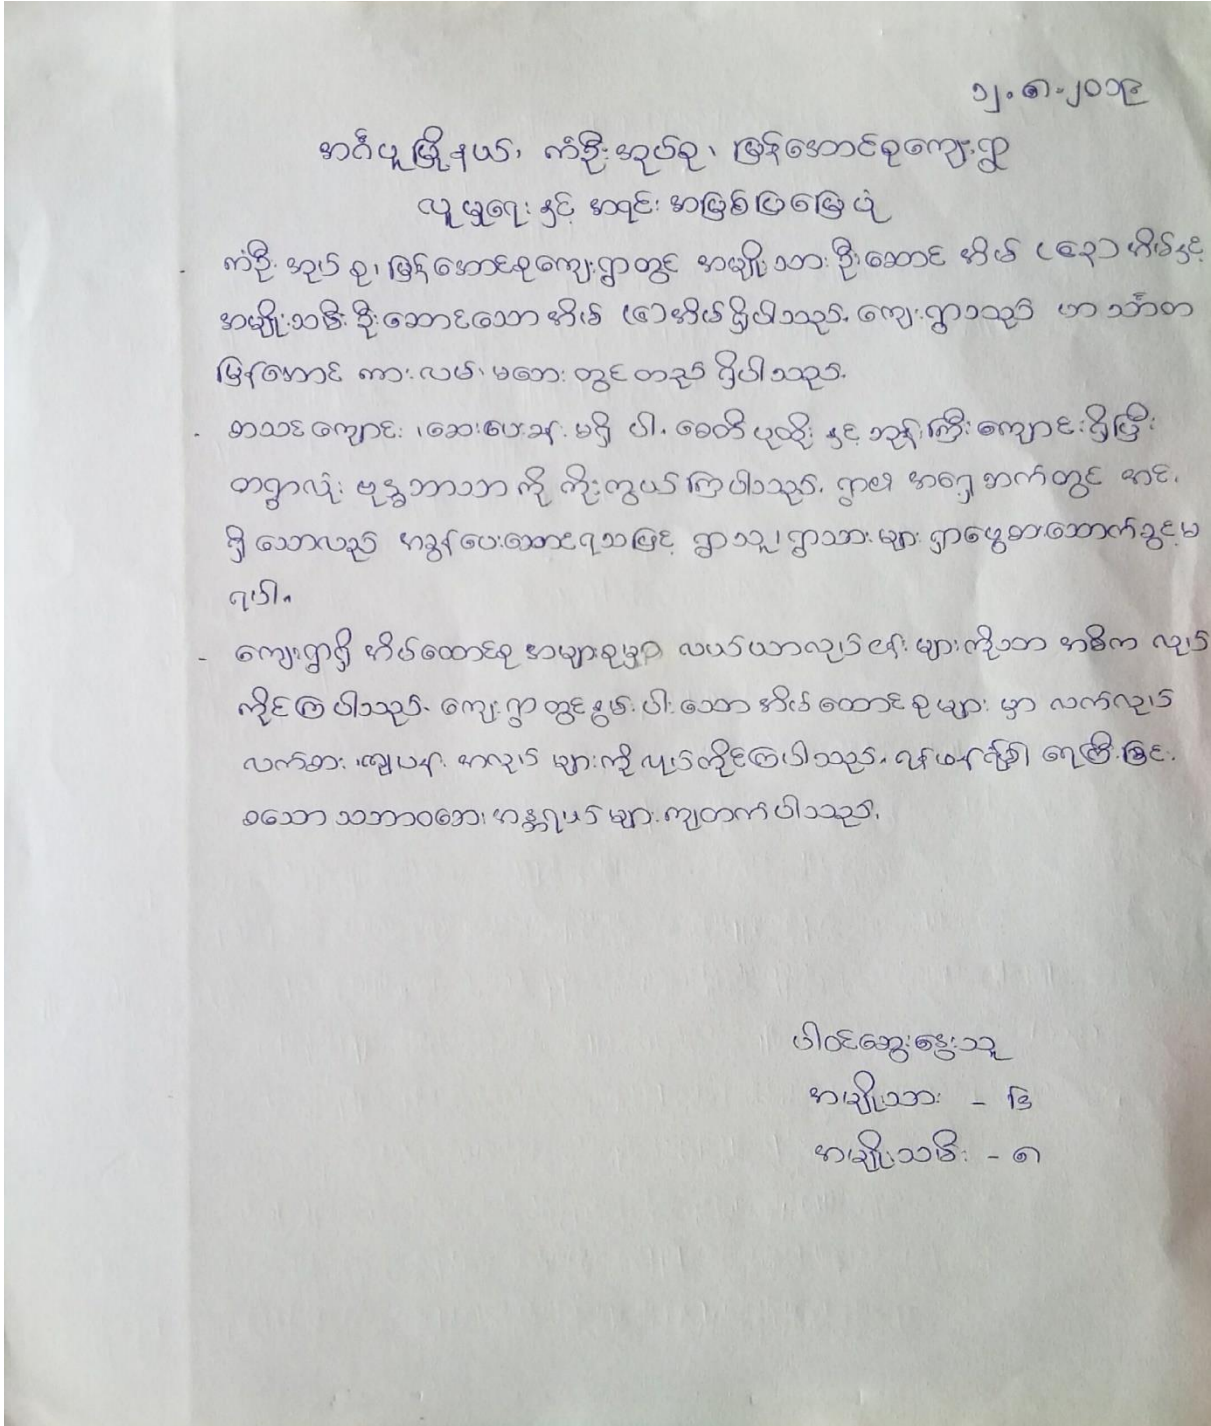 ၁၂.၈.၂၀၁၉
အင်္ဂပူမြို့နယ်၊ ကံဦးအုပ်စု၊ မြန်အောင်စုကျေးရွာ
လူမှုရေး နှင့် အရင်းအမြစ်ပြမြေပုံ
- ကံဦးအုပ်စု၊ မြန်အောင်စုကျေးရွာတွင် အမျိုးသားဦးဆောင် အိမ် အိမ်နှင့်
အမျိုးသမီးဦးဆောင်သော အိမ် အိမ်ရှိပါသည်. ကျေးရွာသည် ဟင်္သာတ
မြန်အောင် ကားလမ်းမဘေးတွင် တည်ရှိပါသည်.
- စာသင်ကျောင်း၊ ဆေးပေးခန်း မရှိပါ. စေတီပုထိုး နှင့် ဘုန်းကြီးကျောင်းရှိပြီး
တရွာလုံး ဗုဒ္ဓဘာသာကို ကိုးကွယ်ကြပါသည်. ရွာ၏ အရှေ့ဘက်တွင် အင်း
ရှိသော်လည်း အခွန်ပေးဆောင်ရသဖြင့် ရွာသူ၊ ရွာသားများ ရှာဖွေစားသောက်ခွင့်မ
ရပါ.
- ကျေးရွာရှိ အိမ်ထောင်စု အများစုမှာ လယ်ယာလုပ်ငန်းများကိုသာ အဓိက လုပ်
ကိုင်ကြပါသည်. ကျေးရွာတွင် နွမ်းပါးသော အိမ်ထောင်စုများမှာ လက်လုပ်
လက်စား၊ ကျပန်းအလုပ်များကို လုပ်ကိုင်ကြပါသည်. ရေကြီးခြင်း
စသော သဘာဝဘေးအန္တရာယ်များ ကျတက်ပါသည်.
ပါဝင်ဆွေးနွေးသူ
အမျိုးသား - ၆
အမျိုးသမီး - ၈